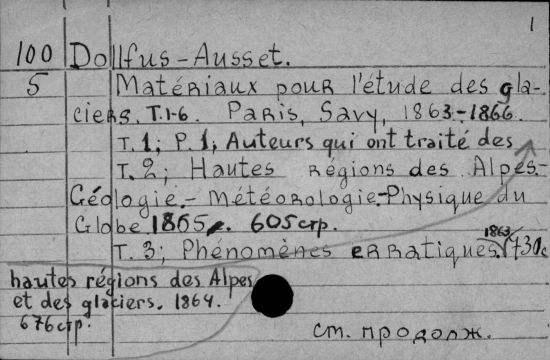 1
100 Dollfus-Ausset.
5 Matériaux pour l'étude des gla-
ciers. T.1-6. Paris, Savy, 1863-1866.
T. 1; P. 1, Auteurs qui ont traité des
T. 2; Hautes régions des Alpes.-
Géologie.- Météorologie.-Physique du
Globe 1865. 605стр.
1863
T. 3; Phénomènes erratiques. 730с
hautes régions des Alpes
et des glaciers. 1864.
676стр.
см. продолж.